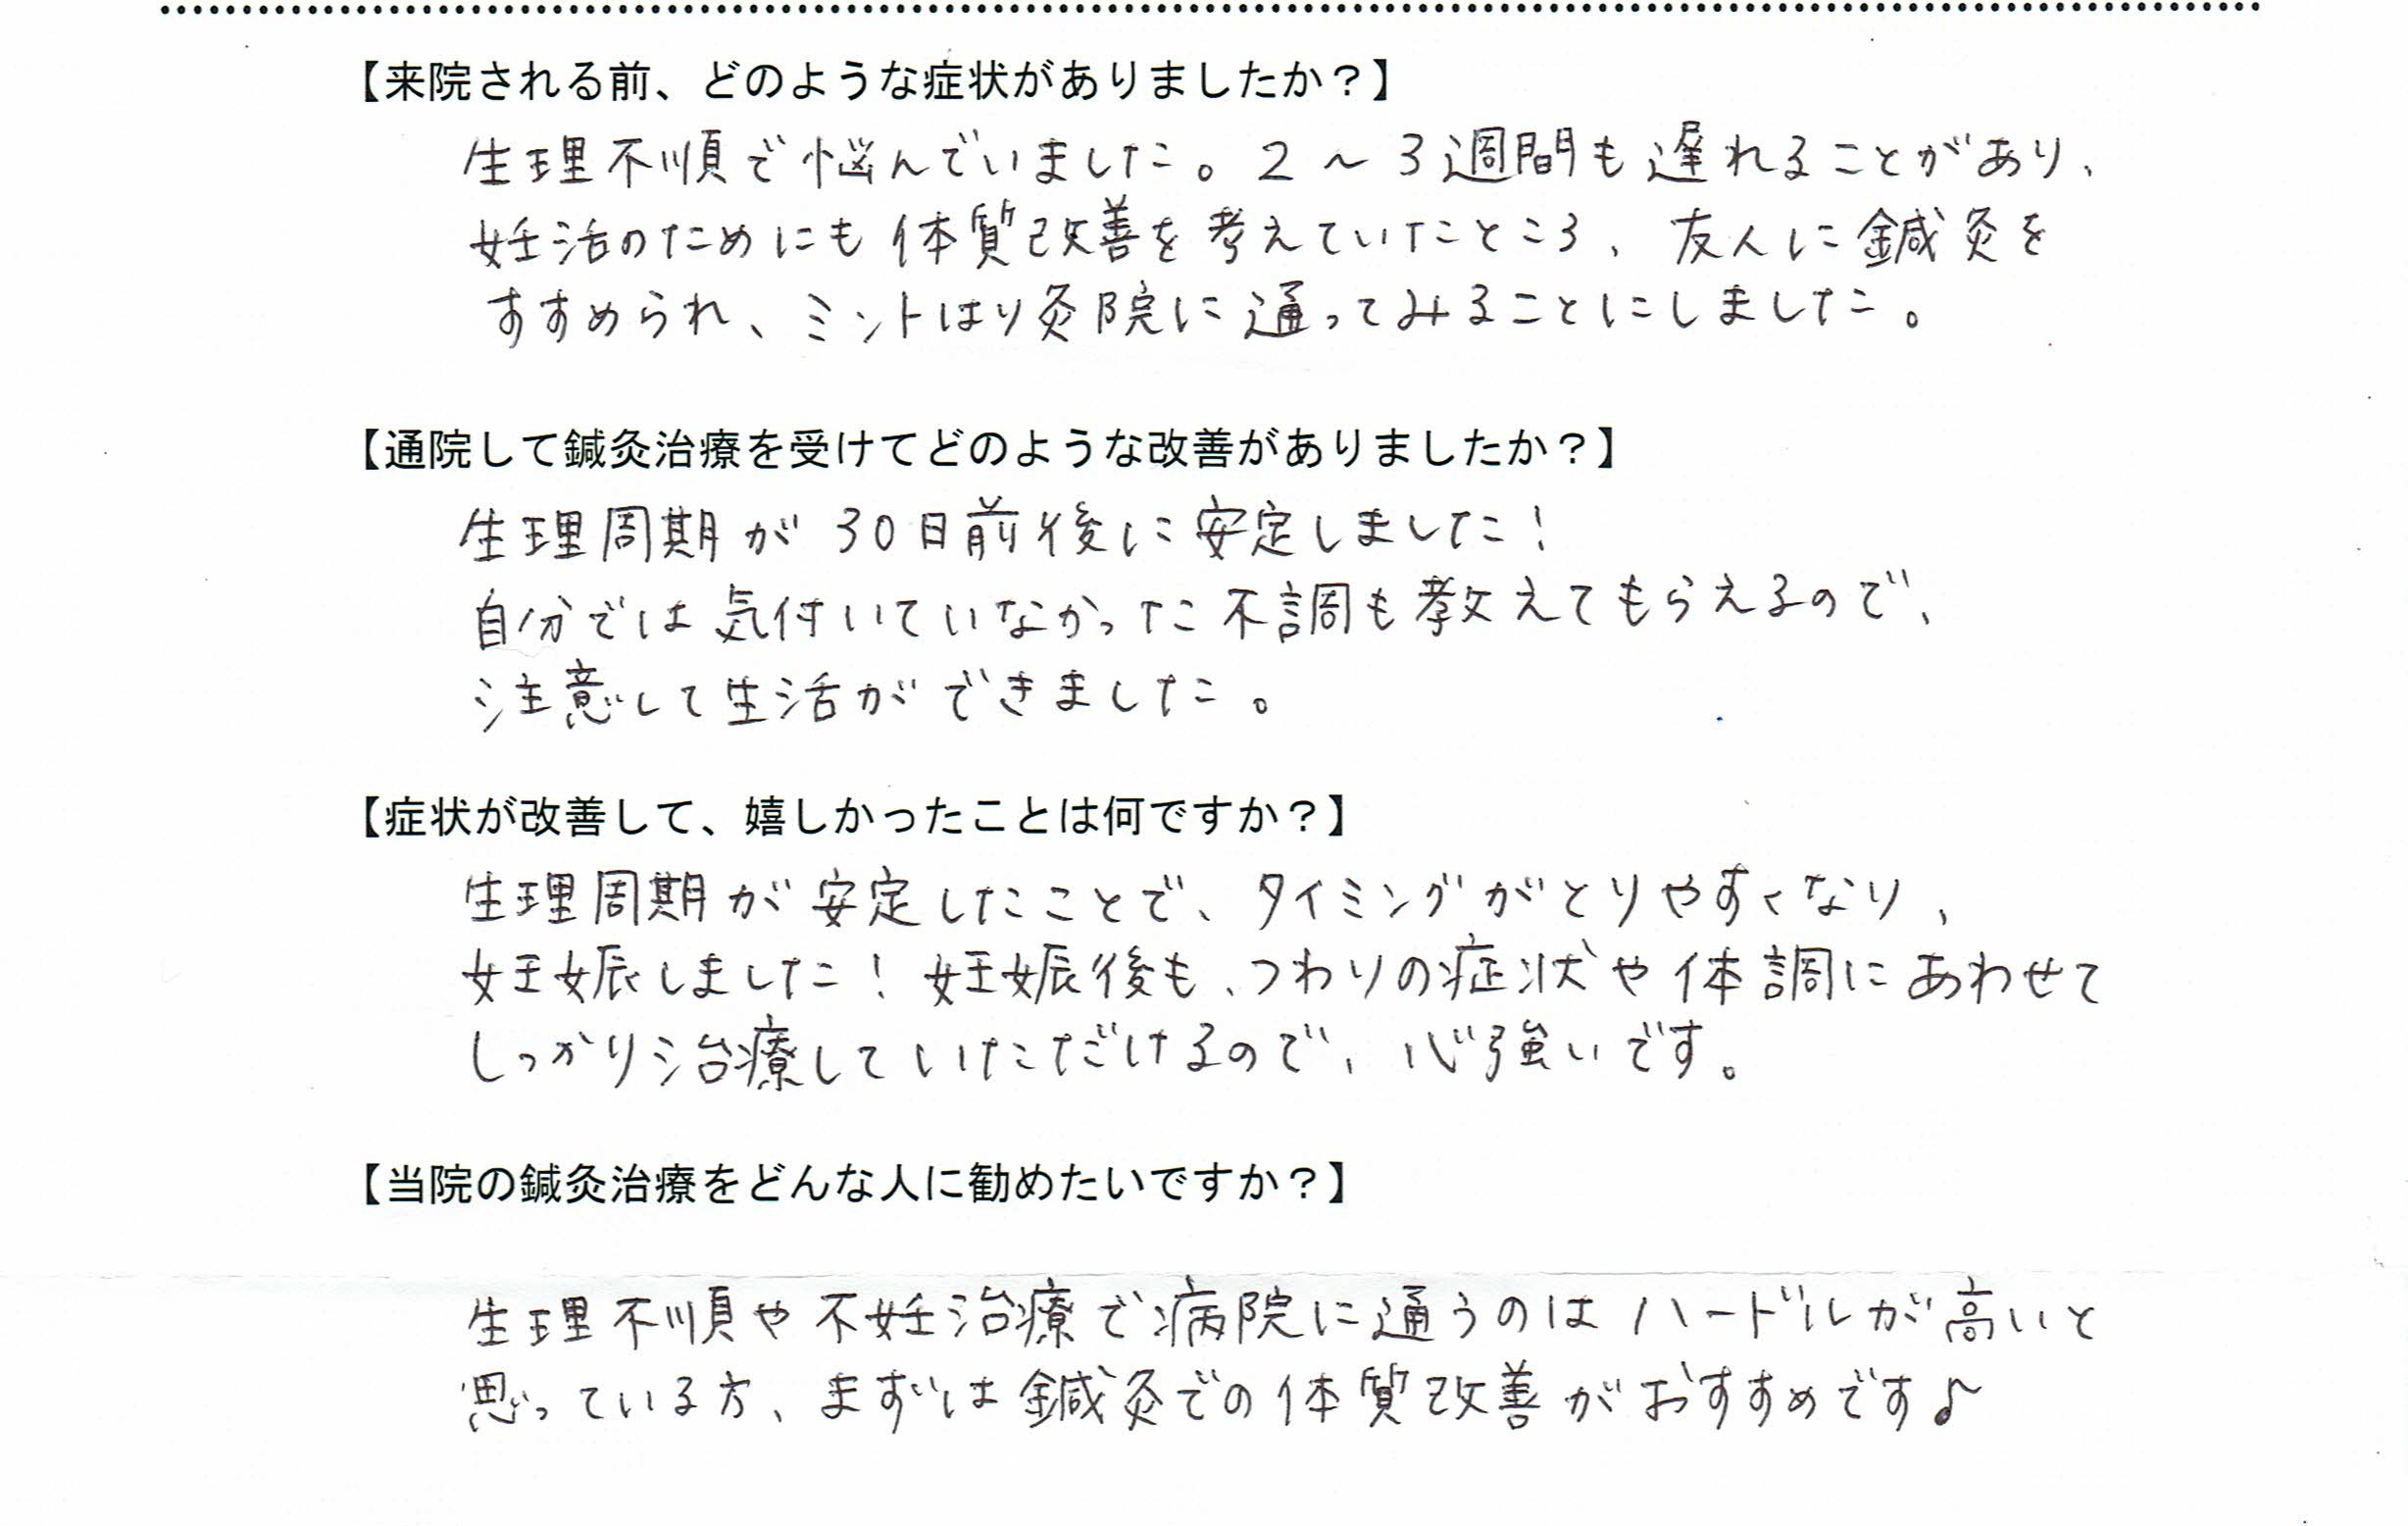 【来院される前、どのような症状がありましたか？】
生理不順で悩んでいました。2～3週間も遅れることがあり、
妊活のためにも体質改善を考えていたところ、友人に鍼灸を
すすめられ、ミントはり灸院に通ってみることにしました。
【通院して鍼灸治療を受けてどのような改善がありましたか？】
生理周期が30日前後に安定しました！
自分では気付いていなかった不調も教えてもらえるので、
注意して生活ができました。
【症状が改善して、嬉しかったことは何ですか？】
生理周期が安定したことで、タイミングがとりやすくなり、
妊娠しました！妊娠後も、つわりの症状や体調にあわせて
しっかり治療していただけるので、心強いです。
【当院の鍼灸治療をどんな人に勧めたいですか？】
生理不順や不妊治療で病院に通うのはハードルが高いと
思っている方、まずは鍼灸での体質改善がおすすめです♪